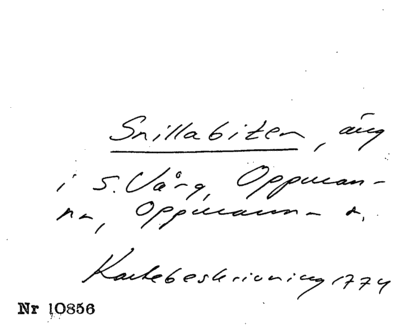 Snillabiten, äng
i S. Vång, Oppman-
na, Oppmanna s.
Kartebeskrivning 1774
Nr 10856